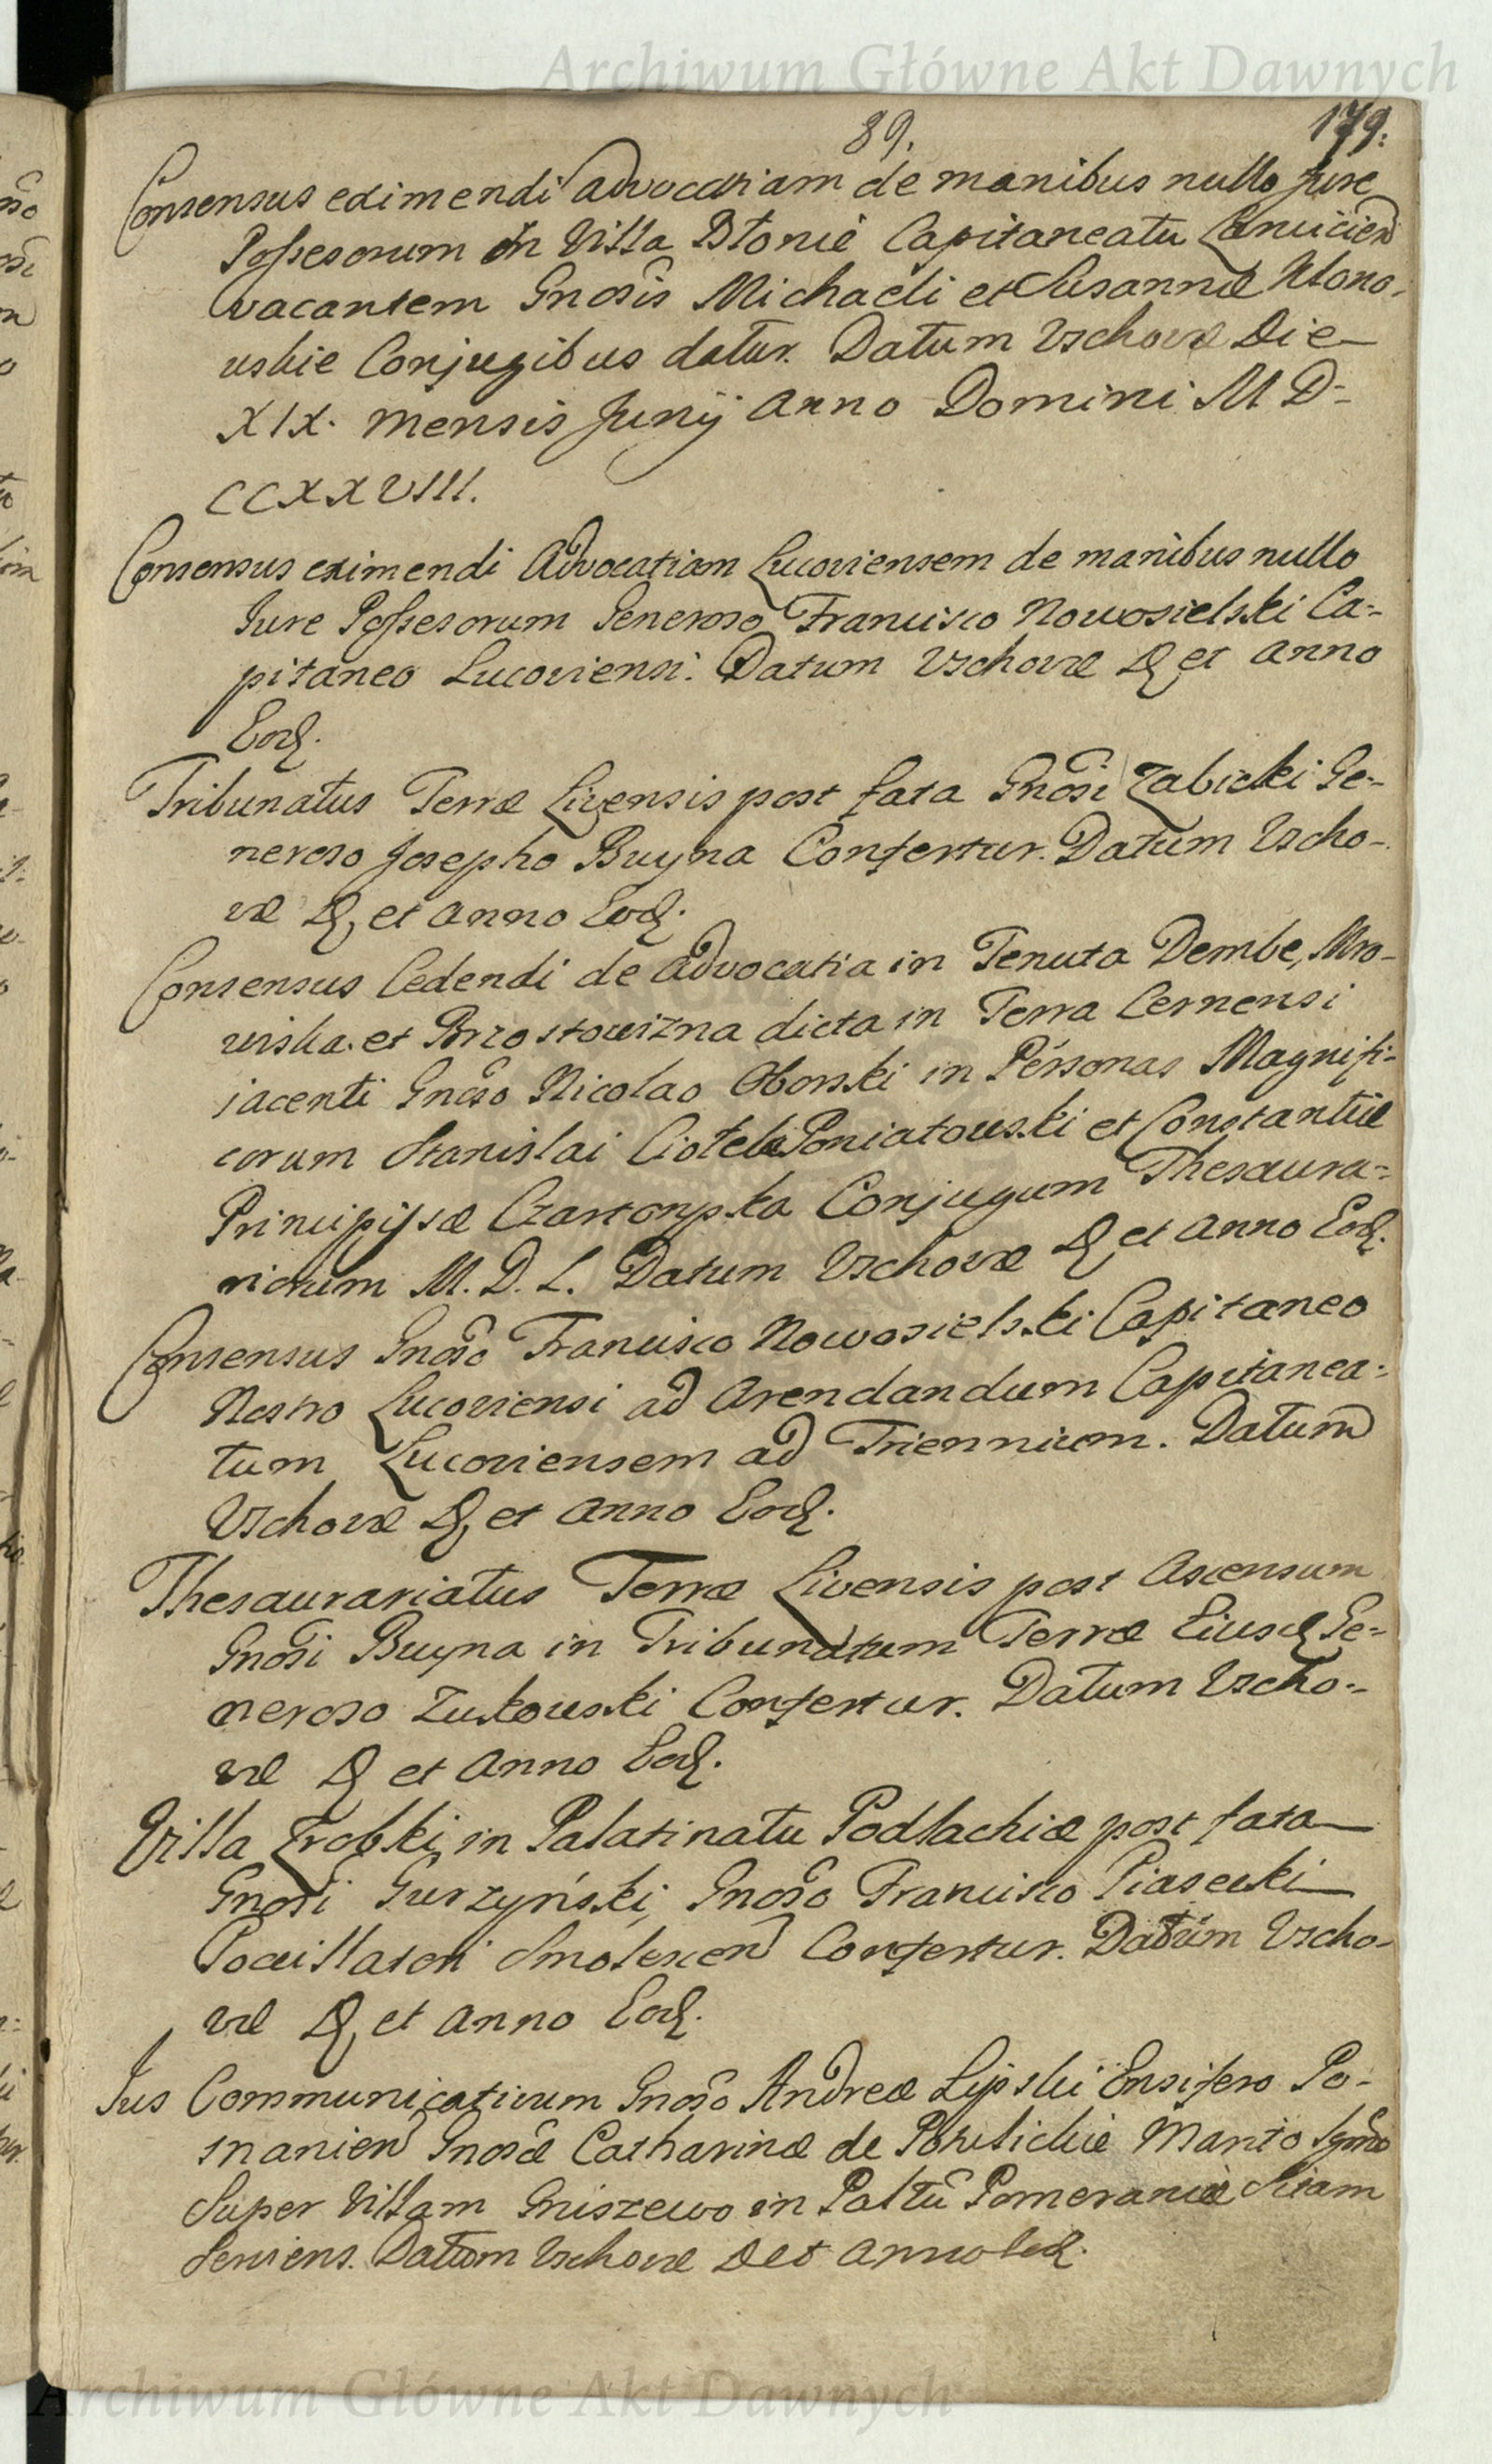 Archiwum Główne Akt Dawnych
89. 179.
Consensus eximendi advocatiam de manibus nullo Jure
Possesorum in Villa Błonie Capitaneatu
vacantem Gnosis Michaeli et Susannæ Klono-
uskie Conjugibus datur. Datum Vschovæ Die
XIX. mensis Junij Anno Domini MD-
CCXXVIII.
Consensus eximendi Advocatiam Lucoviensem de manibus nullo
Jure Possesorum Generoso Francisco Nowosielski Ca-
pitaneo Lucoviensi. Datum Vschovæ D et Anno
Eod.
Tribunatus Terræ Livensis post fata Gnosi Zabicki Ge-
neroso Josepho Buyna Confertur. Datum Vscho-
væ D, et Anno Eod.
Consensus Cedendi de Advocatia in Tenuta Dembe, Mro-
wiska et Brzostowizna dicta in Terra Cernensi
jacenti Gnoso Nicolao Oborski in Personas Magnifi-
corum Stanislai Ciołek Poniatowski et Constantiæ
Principissæ Czartoryska Conjugum Thesaura-
riorum M. D. L. Datum Vschovæ D et Anno Eod.
Consensus Gnoso Francisco Nowosielski Capitaneo
Nostro Lucoviensi ad Arendandum Capitanea-
tum Lucoviensem ad Triennium. Datum
Vschovæ D, et Anno Eod.
Thesaurariatus Terræ Livensis post Ascensum
Gnosi Buyna in Tribunatum Terræ Eiusd Ge-
neroso Zukowski Confertur. Datum Vscho-
væ D et Anno Eod.
Villa Zrobki in Palatinatu Podlachiæ post fata
Gnosi Gurzyński, Gnoso Francisco Piasecki
Pocillatori Smolescen Confertur. Datum Vscho-
væ D, et Anno Eod.
Jus Communicativum Gnoso Andreæ Lipski Ensifero Po-
snanien Gnosæ Catharinæ de Marito
Super Villam Gniszewo in Pałtu Pomeraniæ Sitam
Serviens. Datum Vschovæ D et Anno Eod.
Archiwum Główne Akt Dawnych